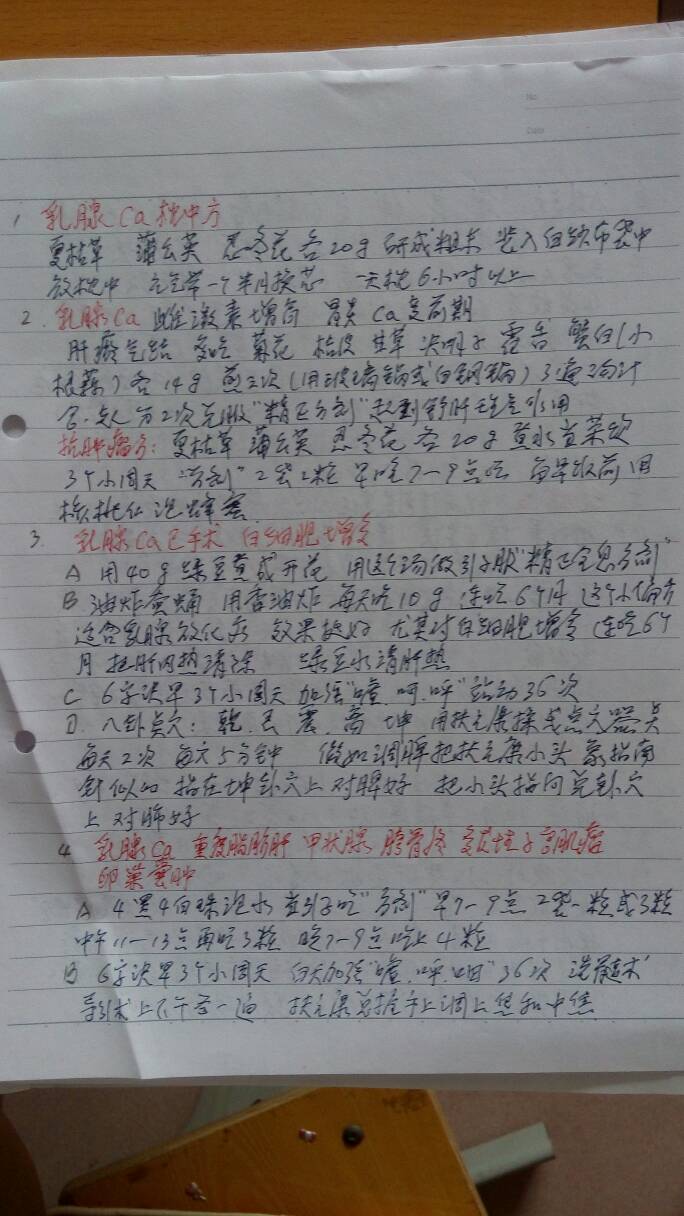 No
Date
1 乳腺Ca 枕中方
夏枯草 蒲公英 忍冬花 各20g 研成粗末 装入白纱布袋中
放枕中 一个半月换芯 一天枕6小时以上
2. 乳腺Ca 雌激素增高 胃炎 Ca变前期
肝瘀气结 多吃 菊花 桔皮 甘草 决明子 薤白(小
根蒜)各14g 煎三次(用玻璃锅或白钢锅)3遍汤汁
合 分2次 起到舒肝理气作用
抗肿瘤方: 夏枯草 蒲公英 忍冬花 各20g 煮水当茶饮
3个小周天 2袋2粒 早晚7-9点吃 每早饭前用
核桃仁沾蜂蜜
3. 乳腺Ca已手术 白细胞增多
A 用40g绿豆煮成开花 用这个汤做引子服
B 油炸蚕蛹 用香油炸 每天吃10g 连吃6个月 这个小偏方
适合乳腺放化疗 效果挺好 尤其对白细胞增多 连吃6个
月 把肝内热清除 绿豆水清肝热
C 6字决早3个小周天 加强"嘘.呵.呼"站动36次
D. 八卦点穴: 乾.艮.震.离.坤 用扶元康揉或点穴器点
每天2次 每穴5分钟 假如调脾把扶元康小头象指南
针似的 指在坤卦穴上对脾好 把小头指向兑卦穴
上对肺好
4 乳腺Ca 重度脂肪肝 甲状腺 子宫肌瘤
卵巢囊肿
A 4黑4白 泡水 当引子吃 早7-9点 2袋一粒或3粒
中午11-13点再吃3粒 晚7-9点吃上4粒
B 6字决早3个小周天 白天加强"嘘.呼.呬"36次 洗髓术
导引术上下午各一遍 扶元康 手上调上焦和中焦